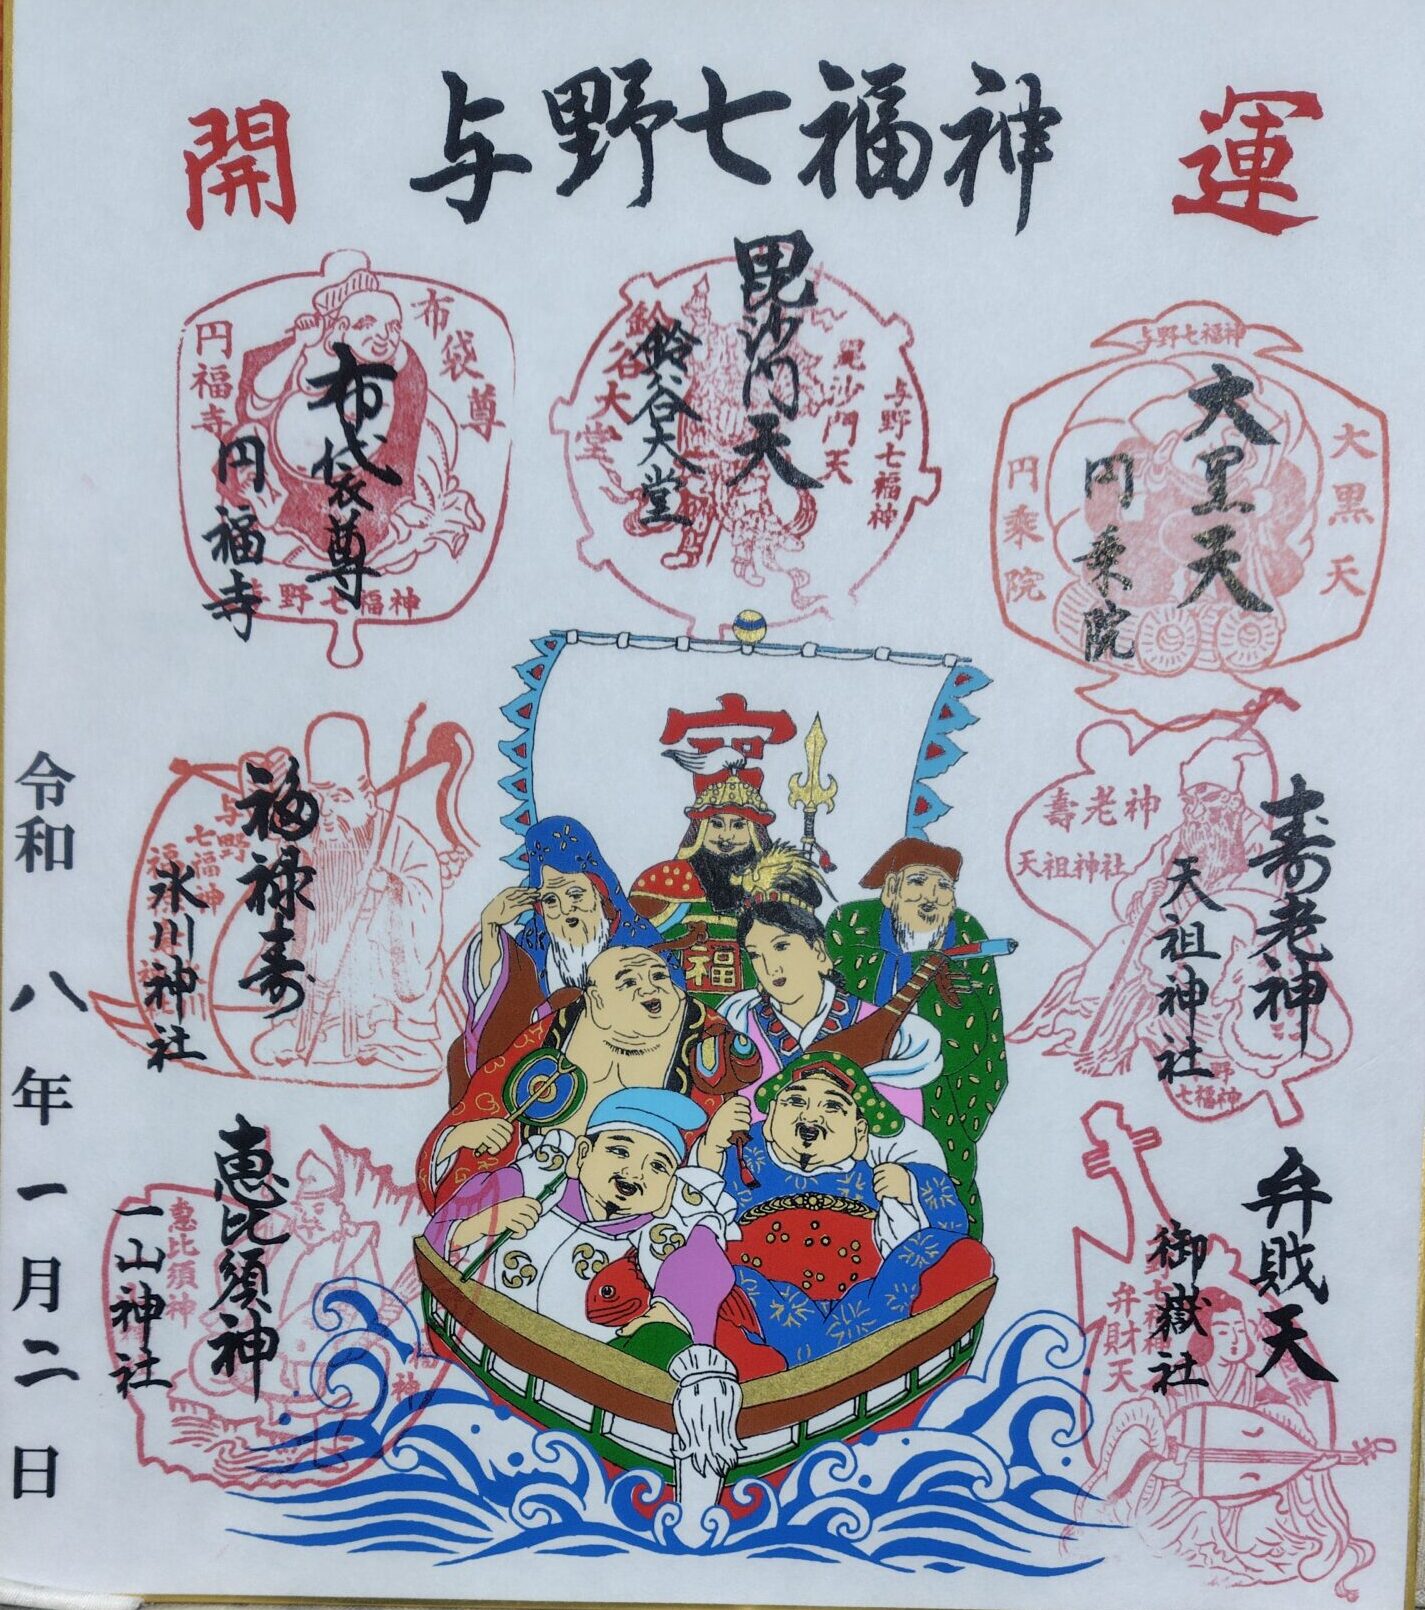 開 与野七福神 運
大黒天
円乗院
与野七福神
大黒天
円乗院
毘沙門天
鈴谷大堂
与野七福神
毘沙門天
鈴谷大堂
布袋尊
円福寺
布袋尊
円福寺
与野七福神
寿老神
天祖神社
壽老神
天祖神社
与野
七福神
福禄寿
氷川神社
与野
七福神
宝
福
弁財天
御嶽社
弁財天
恵比須神
一山神社
恵比須神
令和八年一月二日